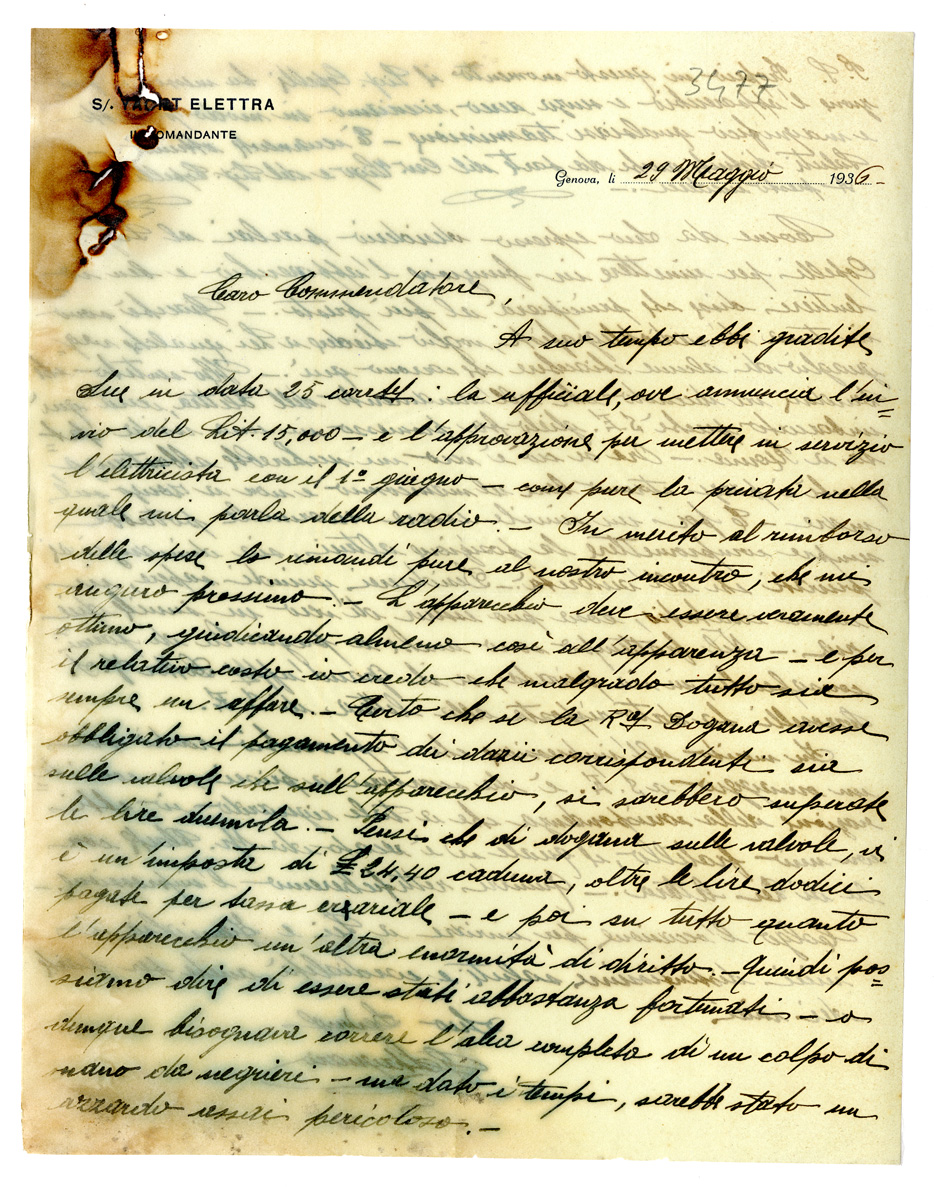 3477
S/. YACHT ELETTRA
IL COMANDANTE
Genova, li 29 Maggio 1936-
Caro Commendatore,
A suo tempo ebbi gradite
Sue in data 25 corrte : la ufficiale, ove annuncia l'in=
vio del Lit. 15,000 — e l'approvazione per mettere in servizio
l'elettricista con il 1° giugno — come pure la privata nella
quale mi parla della radio. — In merito al rimborso
delle spese lo rimandi pure al nostro incontro, che mi
auguro prossimo. — L'apparecchio deve essere veramente
ottimo, giudicando almeno così all'apparenza — e per
il relativo costo io credo che malgrado tutto sia
sempre un affare. — Certo che se la Rª Dogana avesse
obbligato il pagamento dei dazii corrispondenti sia
sulle valvole che sull'apparecchio, si sarebbero superate
le lire duemila. — Pensi che di dogana sulle valvole, vi
è un'imposta di £ 24,40 caduna, oltre le lire dodici
pagate per tassa erariale — e poi su tutto quanto
l'apparecchio un'altra enormità di diritto. — Quindi pos=
siamo dire di essere stati abbastanza fortunati — o
dunque bisognava correre l'alea completa di un colpo di
mano da negrieri — ma dato i tempi, sarebbe stato un
azzardo assai pericoloso. —